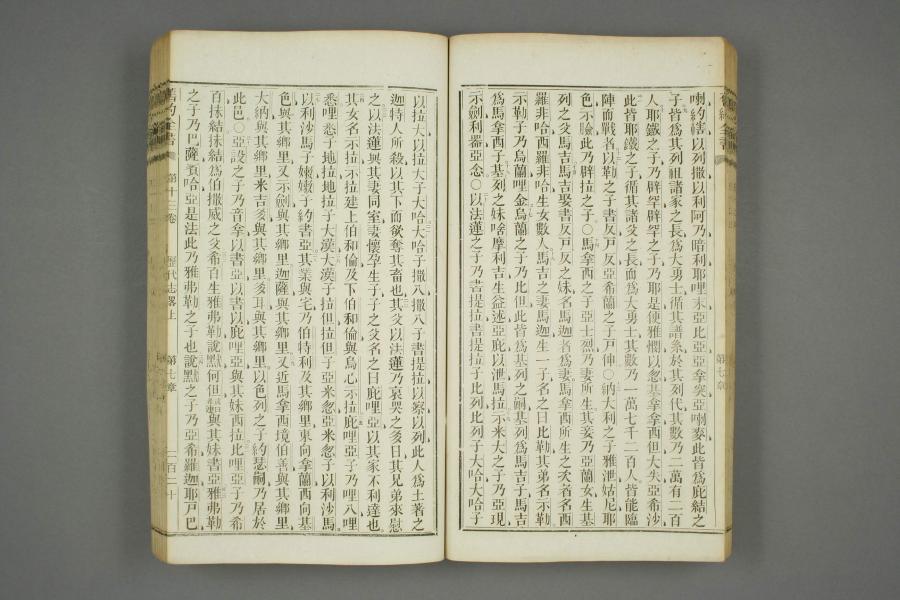 喇約轄以列撒以利阿乃暗利耶哩末亞比亞亞拿突亞喇麥此皆為庇結之
子皆為其列祖諸家之長為大勇士循其譜系於其列代其數乃二萬有二百
人耶鐵之子乃辟罕辟罕之子乃耶是便雅憫以忽基拿拿西但大失亞希沙
此皆耶鐵之子循其諸父之長而為大勇士其數乃一萬七千二百人皆能臨
陣而戰者以勒之子書反戸反亞希蘭之子戸伸〇納大利之子雅泄姑尼耶
色示臉此乃辟拉之子〇馬拿西之子亞士烈乃妻所生其妾乃亞蘭女生基
列之父馬吉馬吉娶書反戸反之妹名馬迦者為妻馬拿西所生之次者名西
羅非哈西羅非哈生女數人馬吉之妻馬迦生一子名之曰比勒其弟名示勒
示勒子乃烏蘭哩金烏蘭之子乃比但此皆為基列之嗣基列為馬吉子馬吉
為馬拿西子基列之妹啥摩利吉生益述亞庇以泄馬拉示米大之子乃亞現
示劍利器亞念〇以法蓮之子乃書提拉書提拉子比列比列子大哈大哈子
以拉大以拉大子大哈大哈子撒八撒八子書提拉以察以列此人為土著之
迦特人所殺以其下而欲奪其畜也其父以法蓮乃哀哭之多日其兄弟來慰
之以法蓮與其妻同室妻懷孕生子子之父名之曰庇哩亞以其家不利達也
其女名示拉示拉建上伯和倫及下伯和倫與烏心示拉庇哩亞子乃哩八哩
悉哩悉子地拉地拉子大漢大漢子拉但拉但子亞米忽亞米忽子以利沙馬
以利沙馬子嫩嫩子約書亞其業與宅乃伯特利及其鄉里東向拿蘭西向基
色與其鄉里又示劍與其鄉里迦薩與其鄉里又近馬拿西境伯善與其鄉里
大納與其鄉里米吉多與其鄉里多耳與其鄉里以色列之子約瑟嗣乃居於
此邑〇亞設之子乃音拿以書亞以書以庇哩亞與其妹西拉此哩亞子乃希
百抹結抹結為伯撒威之父希百生雅弗勒說默何但與其妹書亞雅弗勒
之子乃巴薩賓哈亞是法此乃雅弗勒之子也說默之子乃亞希羅迦耶戸巴
舊約全書
第十三卷
歷代志畧上
第七章
一百二十